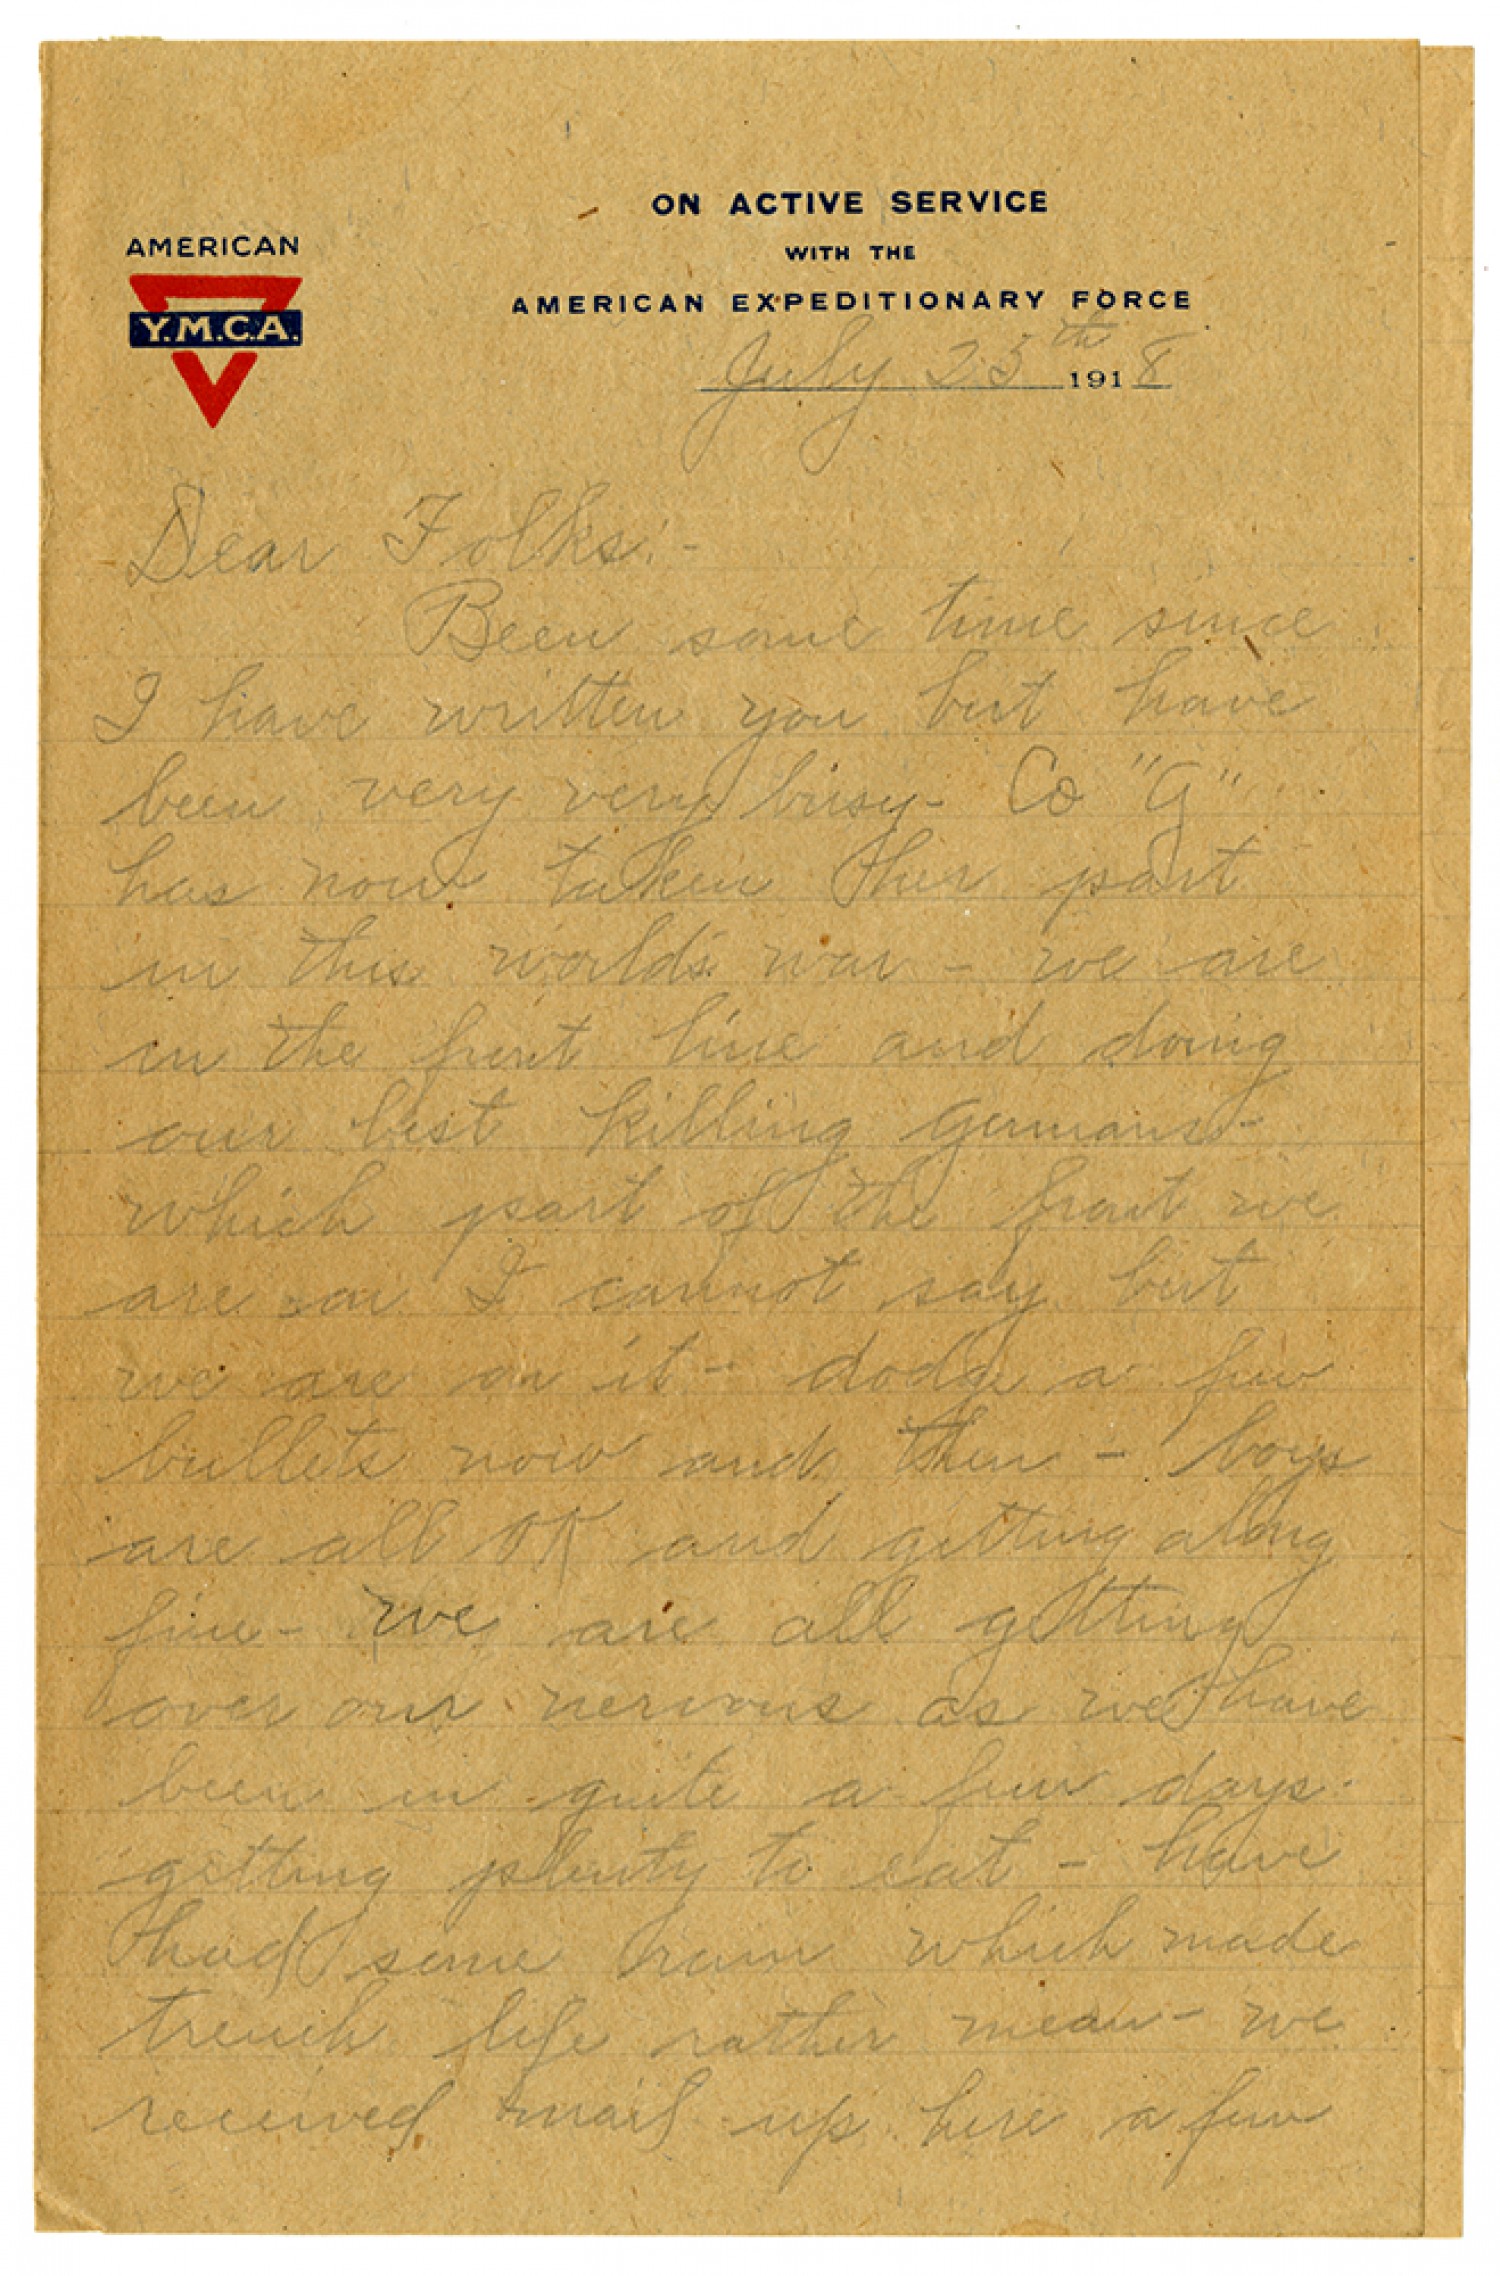 ON ACTIVE SERVICE
WITH THE
AMERICAN EXPEDITIONARY FORCE
AMERICAN
Y.M.C.A.
July 25th 1918
Dear Folks:-
Been some time since
I have written you but have
been very very busy- Co "G"
has now taken ther part
in this worlds war - we are
in the front line and doing
our best killing Germans-
which part of the front we
are on I cannot say but
we are on it - dodge a few
bullets now and then - boys
are all OK and getting along
fine - we are all getting
over our nervous as we have
been in quite a few days.
getting plenty to eat - have
had some rain which made
trench life rather mean - we
received mail up here a few